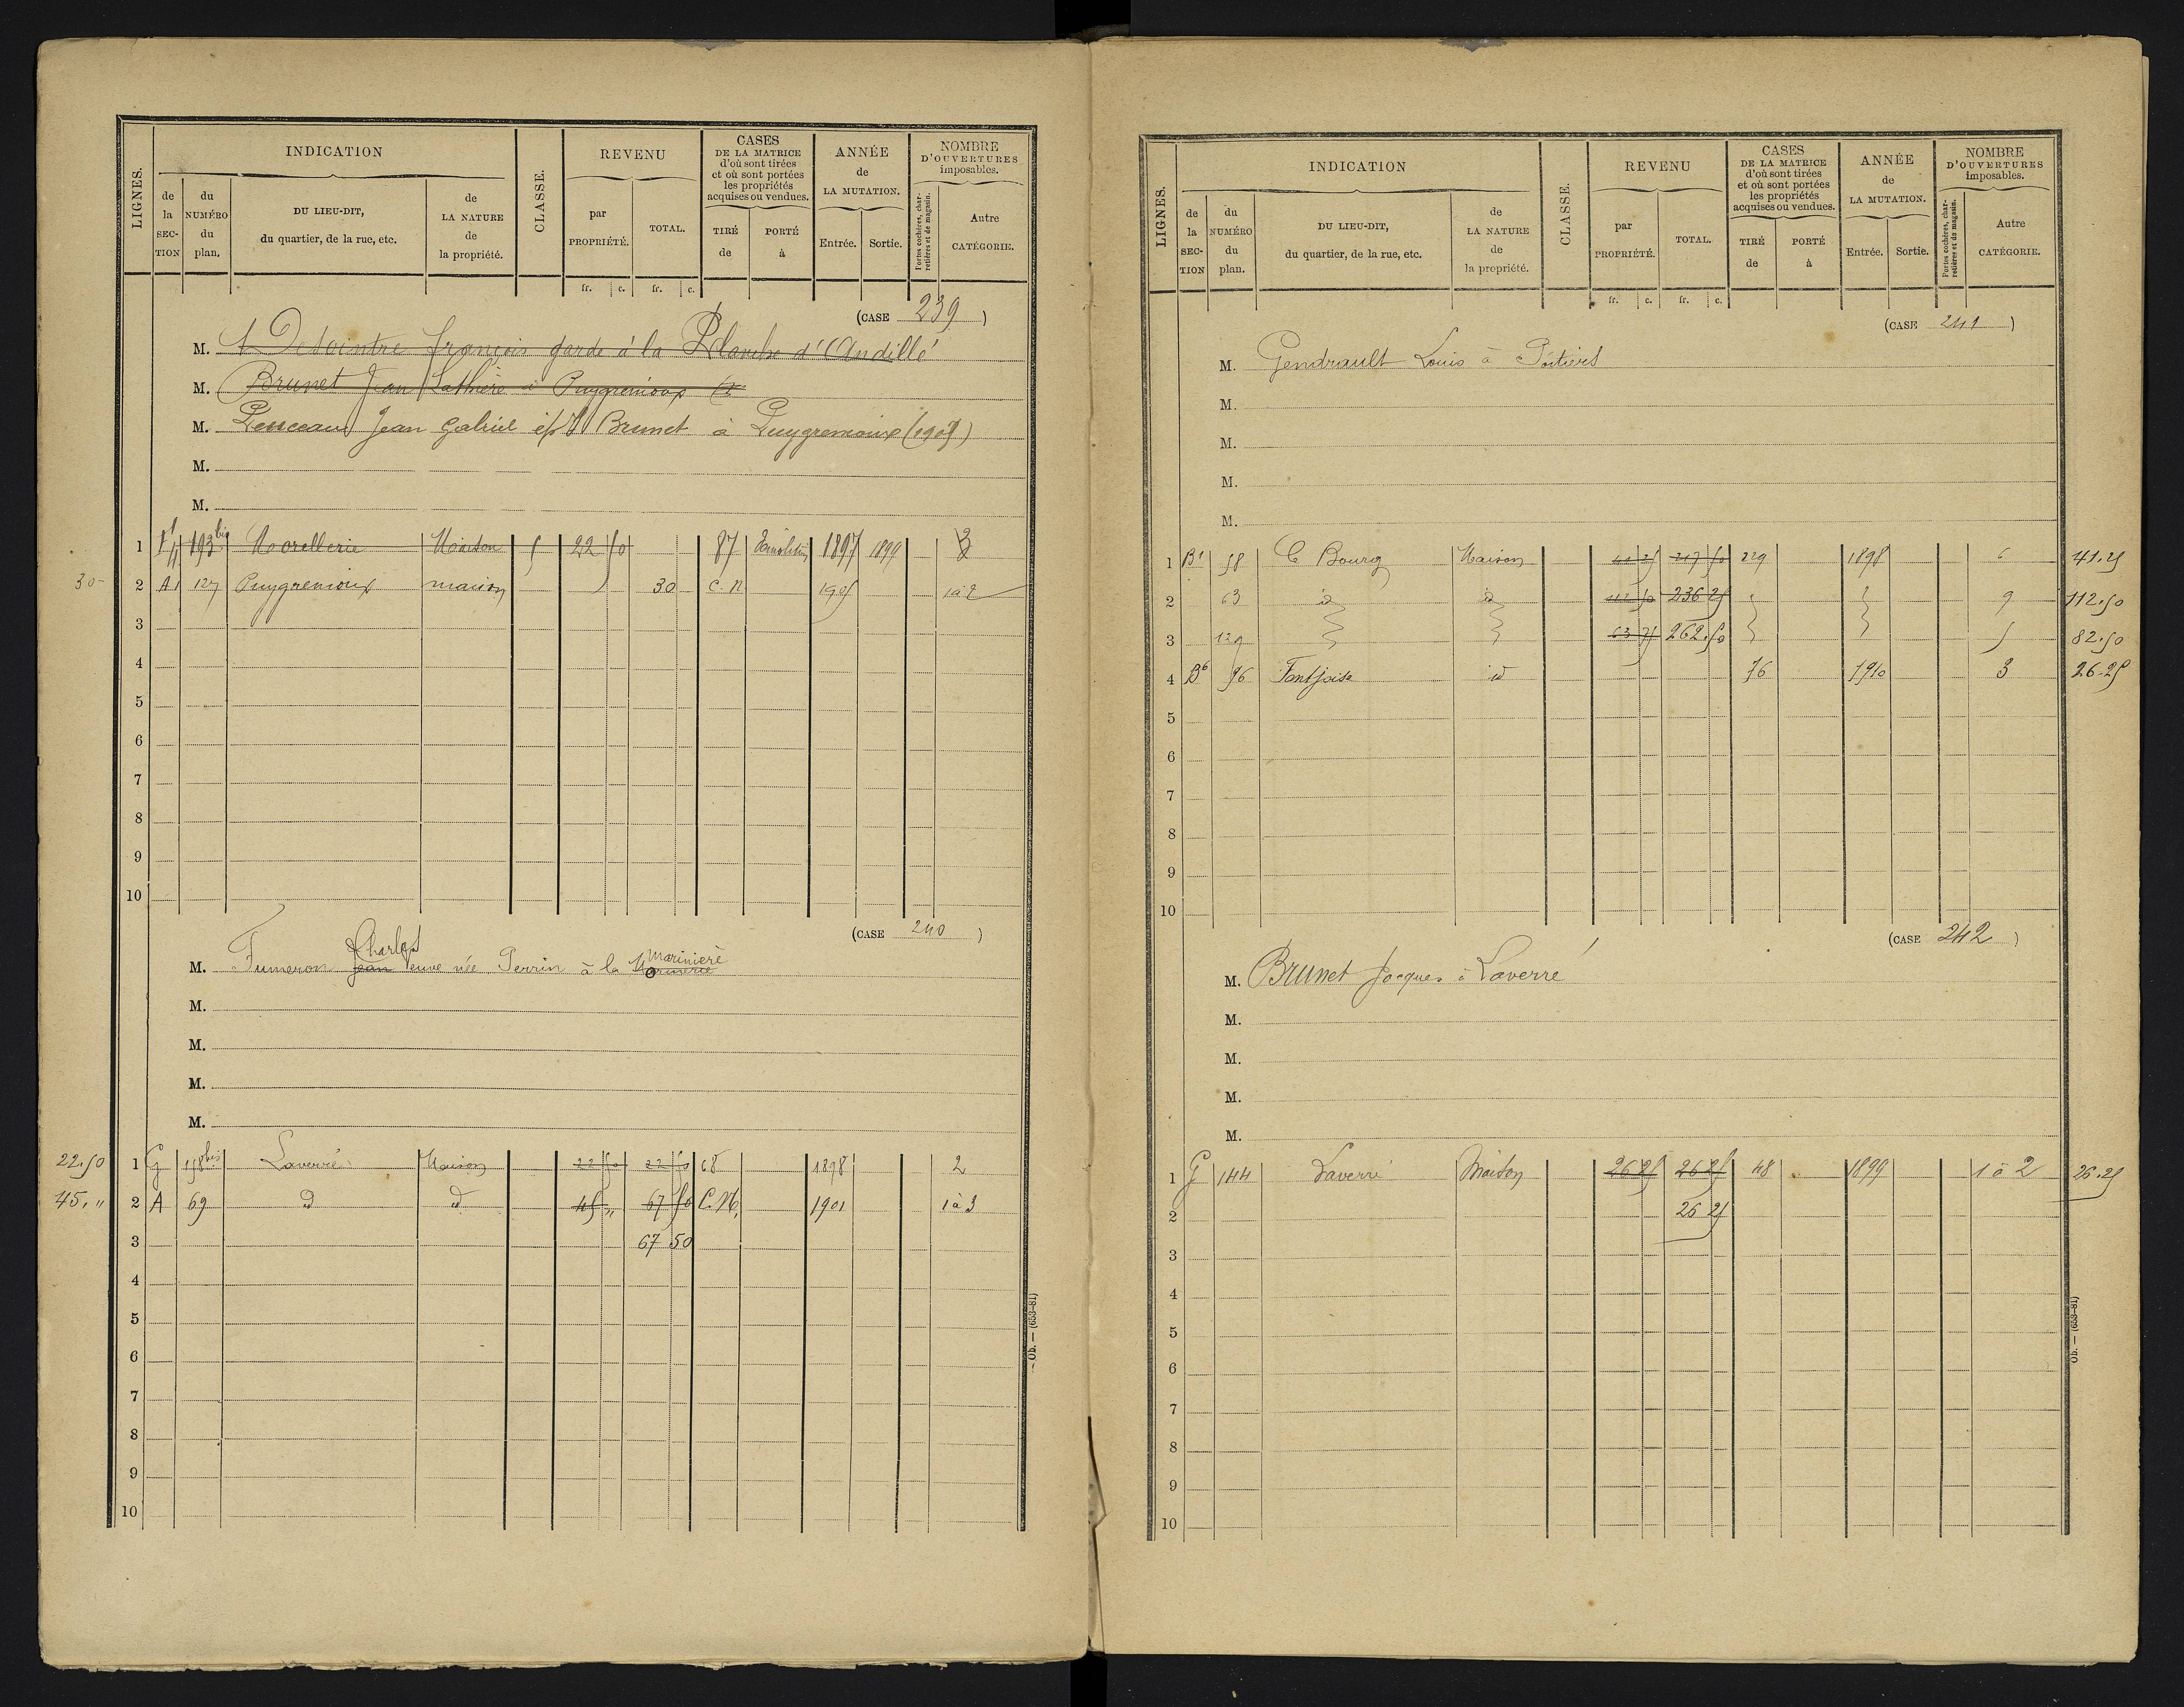 LIGNES.
INDICATION
de la SECTION
du NUMÉRO du plan.
DU LIEU-DIT, du quartier, de la rue, etc.
de LA NATURE de la propriété.
CLASSE.
REVENU
par PROPRIÉTÉ.
TOTAL.
CASES DE LA MATRICE d'où sont tirées et où sont portées les propriétés acquises ou vendues.
TIRÉ de
PORTÉ à
ANNÉE de LA MUTATION.
Entrée.
Sortie.
NOMBRE D'OUVERTURES imposables.
Portes cochères, charretières et de magasin.
Autre CATÉGORIE.
fr. c. fr. c.
(CASE 239)
M. Desointre françois garde à la Planche d'Andillé
M. Brunet Jean Lathière à Puygremoux
M. Penceau Jean Gabriel ép. Brunet à Puygremoux (1905)
M.
M.
1 193 bis Morellerie Maison 5 22 50 87 Démolition 1897 1899 3
30 2 A1 127 Puygremoux maison 30 C. N 1905 1 à 2
3
4
5
6
7
8
9
10
(CASE 240)
Charles
M. Fumeron Jean Veuve née Perrin à la Marinière
M.
M.
M.
M.
22.50 1 G 158 bis Laverré Maison 22 50 22 50 68 1898 2
45. " 2 A 69 d d 45 " 67 50 C.N. 1901 1 à 3
3 67 50
4
5
6
7
8
9
10
Ob. — (653-81)
LIGNES.
INDICATION
de la SECTION
du NUMÉRO du plan.
DU LIEU-DIT, du quartier, de la rue, etc.
de LA NATURE de la propriété.
CLASSE.
REVENU
par PROPRIÉTÉ.
TOTAL.
CASES DE LA MATRICE d'où sont tirées et où sont portées les propriétés acquises ou vendues.
TIRÉ de
PORTÉ à
ANNÉE de LA MUTATION.
Entrée.
Sortie.
NOMBRE D'OUVERTURES imposables.
Portes cochères, charretières et de magasin.
Autre CATÉGORIE.
fr. c. fr. c.
(CASE 241)
M. Gendrault Louis à Poitiers
M.
M.
M.
M.
1 B1 58 Bourg Maison 41 25 217 50 229 1898 6 41.25
2 63 id id 112 50 236 25 9 112.50
3 129 63 75 262.50 5 82.50
4 B6 96 Fontjoise id 76 1910 3 26.25
5
6
7
8
9
10
(CASE 242)
M. Brunet Jacques à Laverré
M.
M.
M.
M.
1 G 144 Laverré Maison 26 25 26 25 48 1899 1 à 2 26.25
2 26 25
3
4
5
6
7
8
9
10
Ob. — (653-81)